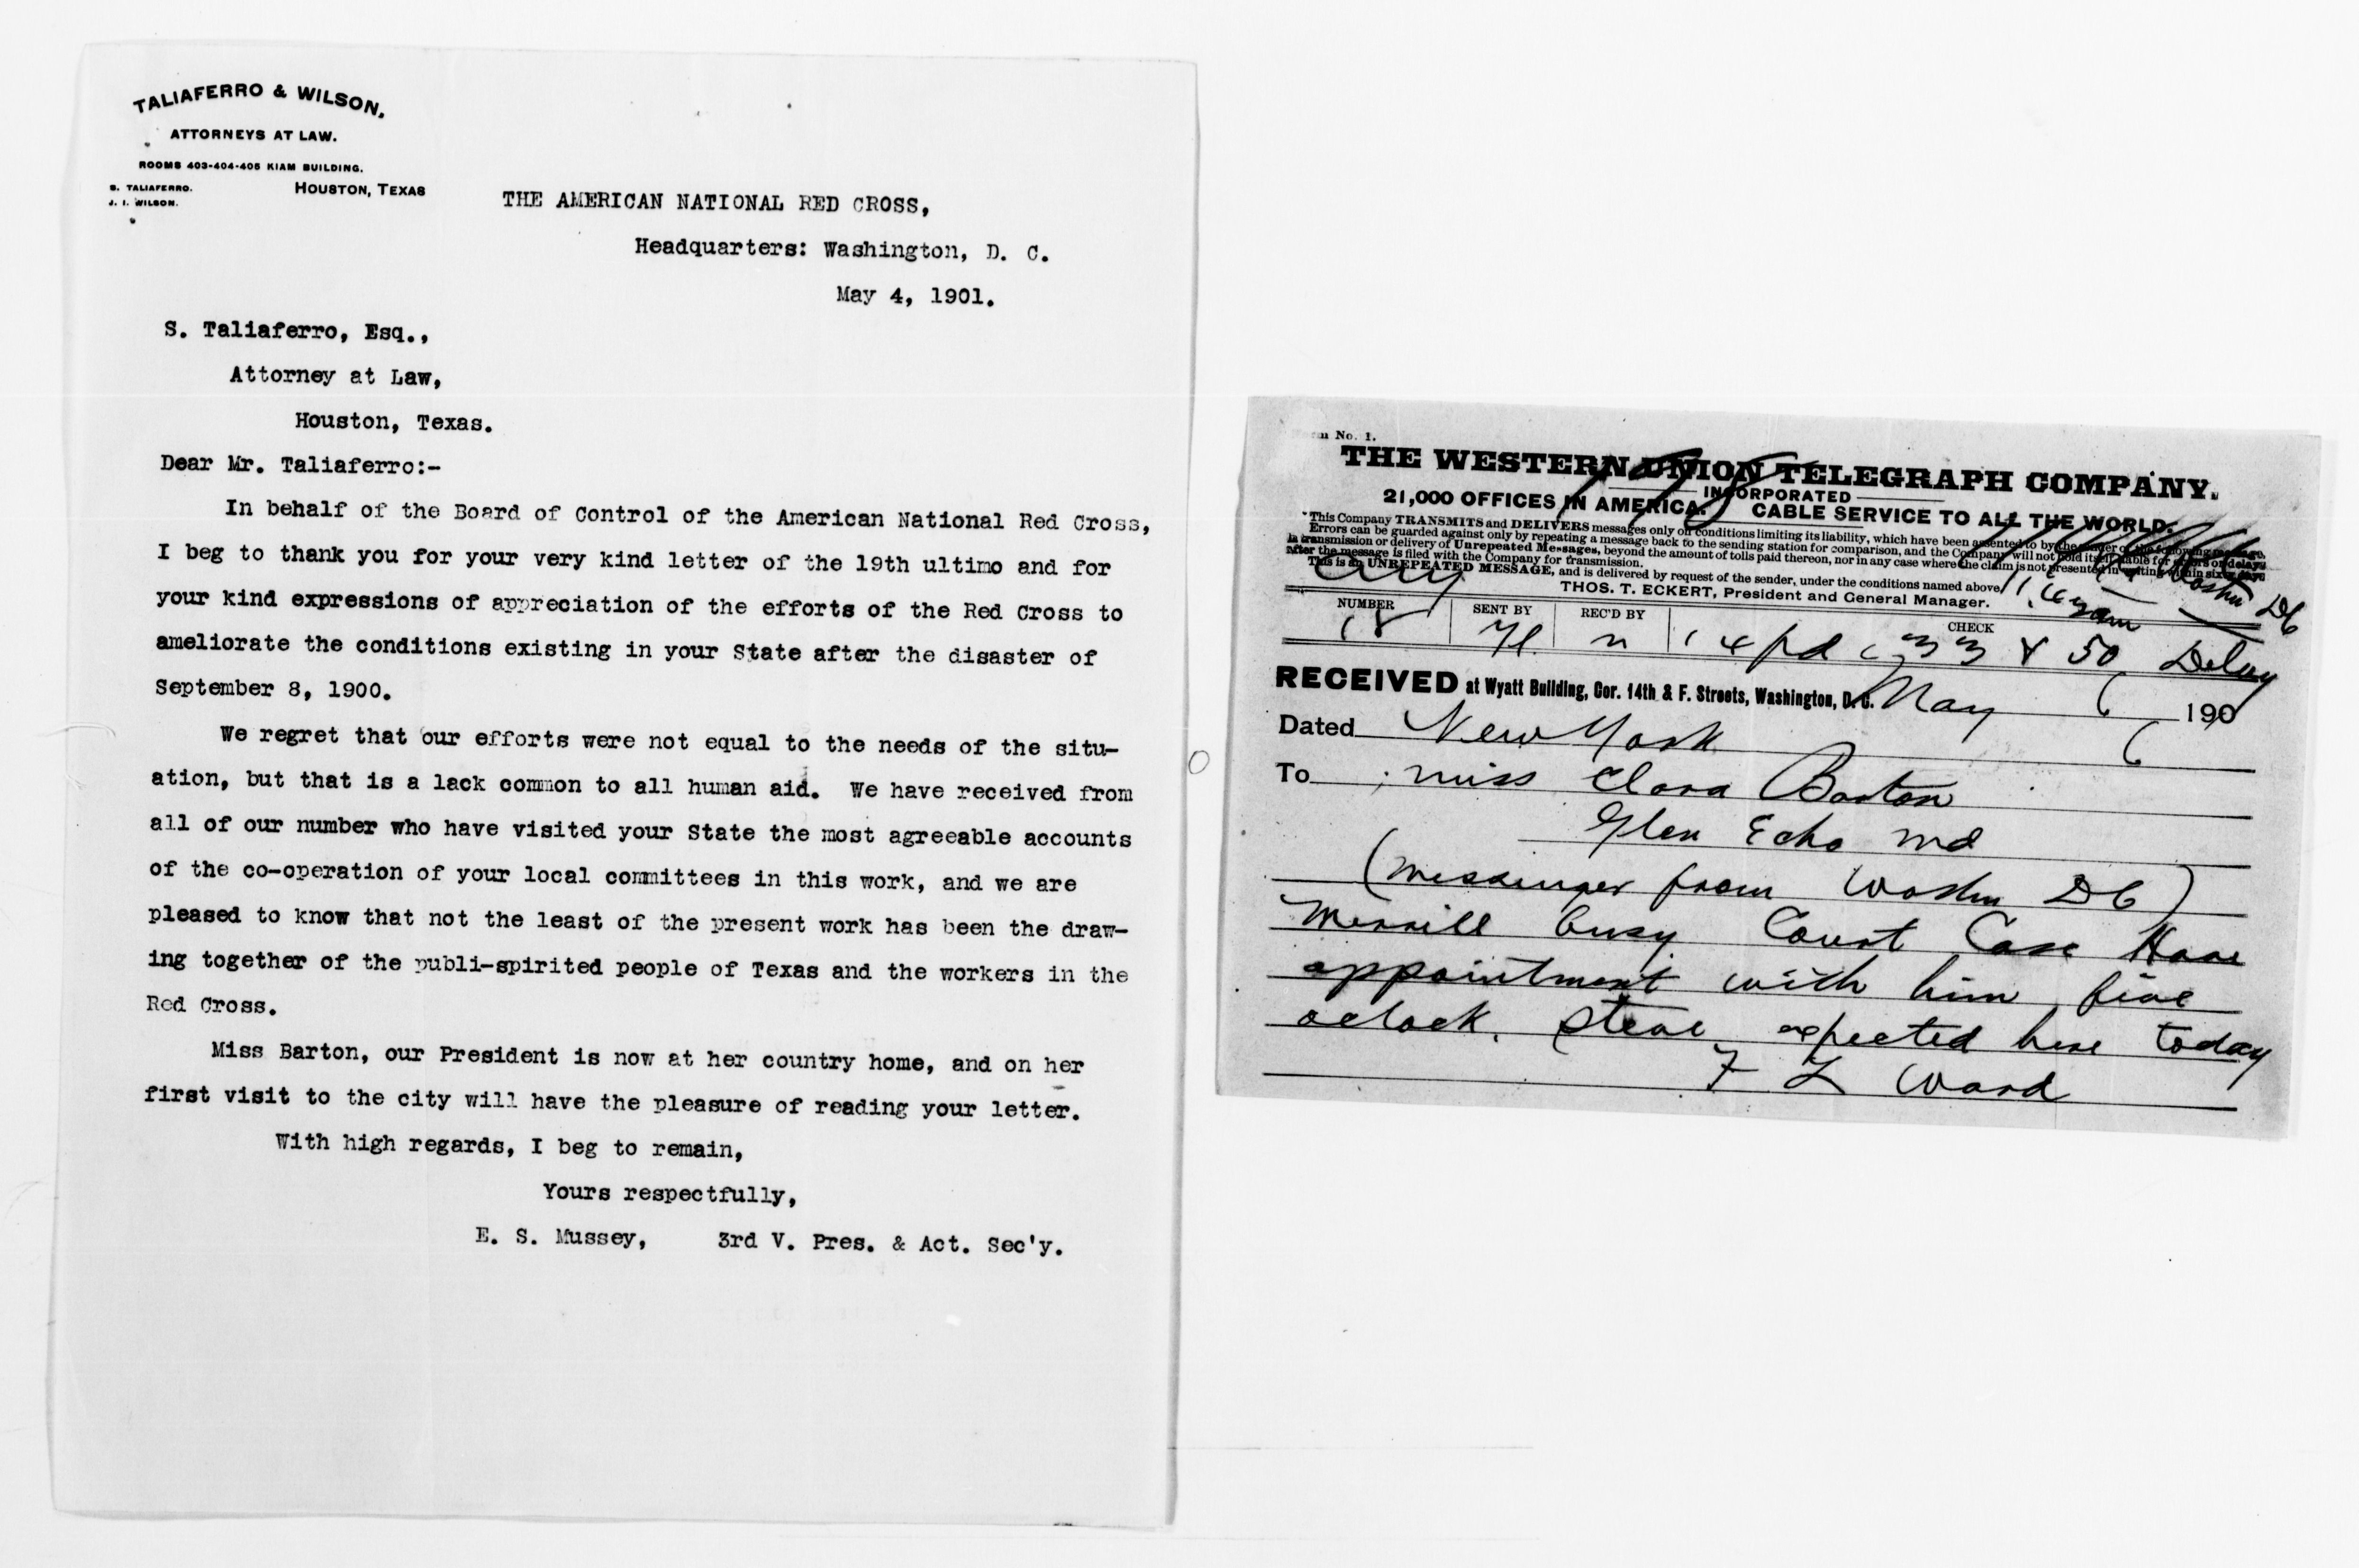 TALIAFERRO & WILSON,
ATTORNEYS AT LAW.
ROOMS 403-404-405 KIAM BUILDING.
S. TALIAFERRO.
J. I. WILSON.
HOUSTON, TEXAS
THE AMERICAN NATIONAL RED CROSS,
Headquarters: Washington, D. C.
May 4, 1901.
S. Taliaferro, Esq.,
Attorney at Law,
Houston, Texas.
Dear Mr. Taliaferro:-
In behalf of the Board of Control of the American National Red Cross,
I beg to thank you for your very kind letter of the 19th ultimo and for
your kind expressions of appreciation of the efforts of the Red Cross to
ameliorate the conditions existing in your State after the disaster of
September 8, 1900.
We regret that our efforts were not equal to the needs of the situ-
ation, but that is a lack common to all human aid. We have received from
all of our number who have visited your State the most agreeable accounts
of the co-operation of your local committees in this work, and we are
pleased to know that not the least of the present work has been the draw-
ing together of the publi-spirited people of Texas and the workers in the
Red Cross.
Miss Barton, our President is now at her country home, and on her
first visit to the city will have the pleasure of reading your letter.
With high regards, I beg to remain,
Yours respectfully,
E. S. Mussey, 3rd V. Pres. & Act. Sec'y.
Form No. 1.
THE WESTERN UNION TELEGRAPH COMPANY.
INCORPORATED
21,000 OFFICES IN AMERICA. CABLE SERVICE TO ALL THE WORLD.
This Company TRANSMITS and DELIVERS messages only on conditions limiting its liability, which have been assented to by the sender of the following message.
Errors can be guarded against only by repeating a message back to the sending station for comparison, and the Company will not hold itself liable for errors or delays
in transmission or delivery of Unrepeated Messages, beyond the amount of tolls paid thereon, nor in any case where the claim is not presented in writing within sixty days
after the message is filed with the Company for transmission.
This is an UNREPEATED MESSAGE, and is delivered by request of the sender, under the conditions named above.
THOS. T. ECKERT, President and General Manager.
Washn DC
NUMBER SENT BY REC'D BY CHECK
18 14 pd 33 & 50 Delay
RECEIVED at Wyatt Building, Cor. 14th & F. Streets, Washington, D. C. May 6 190
Dated New York 6
To miss Clara Barton
Glen Echo md
(messenger from Washn DC)
Merrill busy Court Case Have
appointment with him five
oclock. Steve expected here today
F L Ward